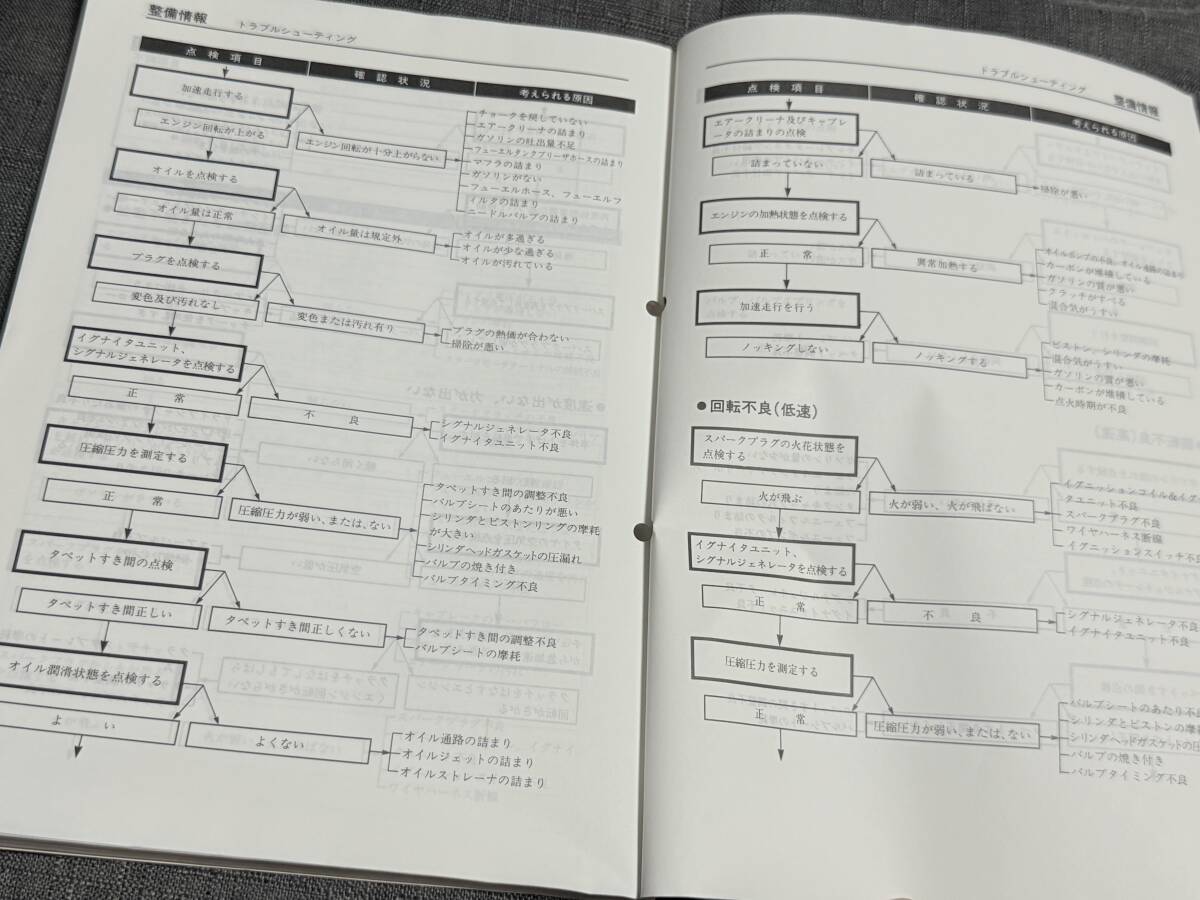 整備情報
トラブルシューティング
点検項目
確認状況
考えられる原因
加速走行する
エンジン回転が上がる
エンジン回転が十分上がらない
チョークを戻していない
エアークリーナの詰まり
ガソリンの吐出量不足
フューエルタンクブリーザホースの詰まり
マフラの詰まり
ガソリンがない
フューエルホース、フューエルフ
ィルタの詰まり
ニードルバルブの詰まり
オイルを点検する
オイル量は正常
オイル量は規定外
オイルが多過ぎる
オイルが少な過ぎる
オイルが汚れている
プラグを点検する
変色及び汚れなし
変色または汚れ有り
プラグの熱価が合わない
掃除が悪い
イグナイタユニット、
シグナルジェネレータを点検する
正常
不良
シグナルジェネレータ不良
イグナイタユニット不良
圧縮圧力を測定する
正常
圧縮圧力が弱い、または、ない
タペットすき間の調整不良
バルブシートのあたりが悪い
シリンダとピストンリングの摩耗
が大きい
シリンダヘッドガスケットの圧漏れ
バルブの焼き付き
バルブタイミング不良
タペットすき間の点検
タペットすき間正しい
タペットすき間正しくない
タペットすき間の調整不良
バルブシートの摩耗
オイル潤滑状態を点検する
よい
よくない
オイル通路の詰まり
オイルジェットの詰まり
オイルストレーナの詰まり
トラブルシューティング
整備情報
点検項目
確認状況
考えられる原因
エアークリーナ及びキャブレ
ータの詰まりの点検
詰まっていない
詰まっている
掃除が悪い
エンジンの加熱状態を点検する
正常
異常加熱する
オイルポンプの不良、オイル通路の詰まり
カーボンが堆積している
ガソリンの質が悪い
クラッチがすべる
混合気がうすい
加速走行を行う
ノッキングしない
ノッキングする
ピストン、シリンダの摩耗
混合気がうすい
ガソリンの質が悪い
カーボンが堆積している
点火時期が不良
●回転不良(低速)
スパークプラグの火花状態を
点検する
火が飛ぶ
火が弱い、火が飛ばない
イグニッションコイル&イグ
タユニット不良
スパークプラグ不良
ワイヤハーネス断線
イグニッションスイッチ不良
イグナイタユニット、
シグナルジェネレータを点検する
正常
不良
シグナルジェネレータ不良
イグナイタユニット不良
圧縮圧力を測定する
正常
圧縮圧力が弱い、または、ない
バルブシートのあたり不良
シリンダとピストンの摩耗
シリンダヘッドガスケットの圧
バルブの焼き付き
バルブタイミング不良